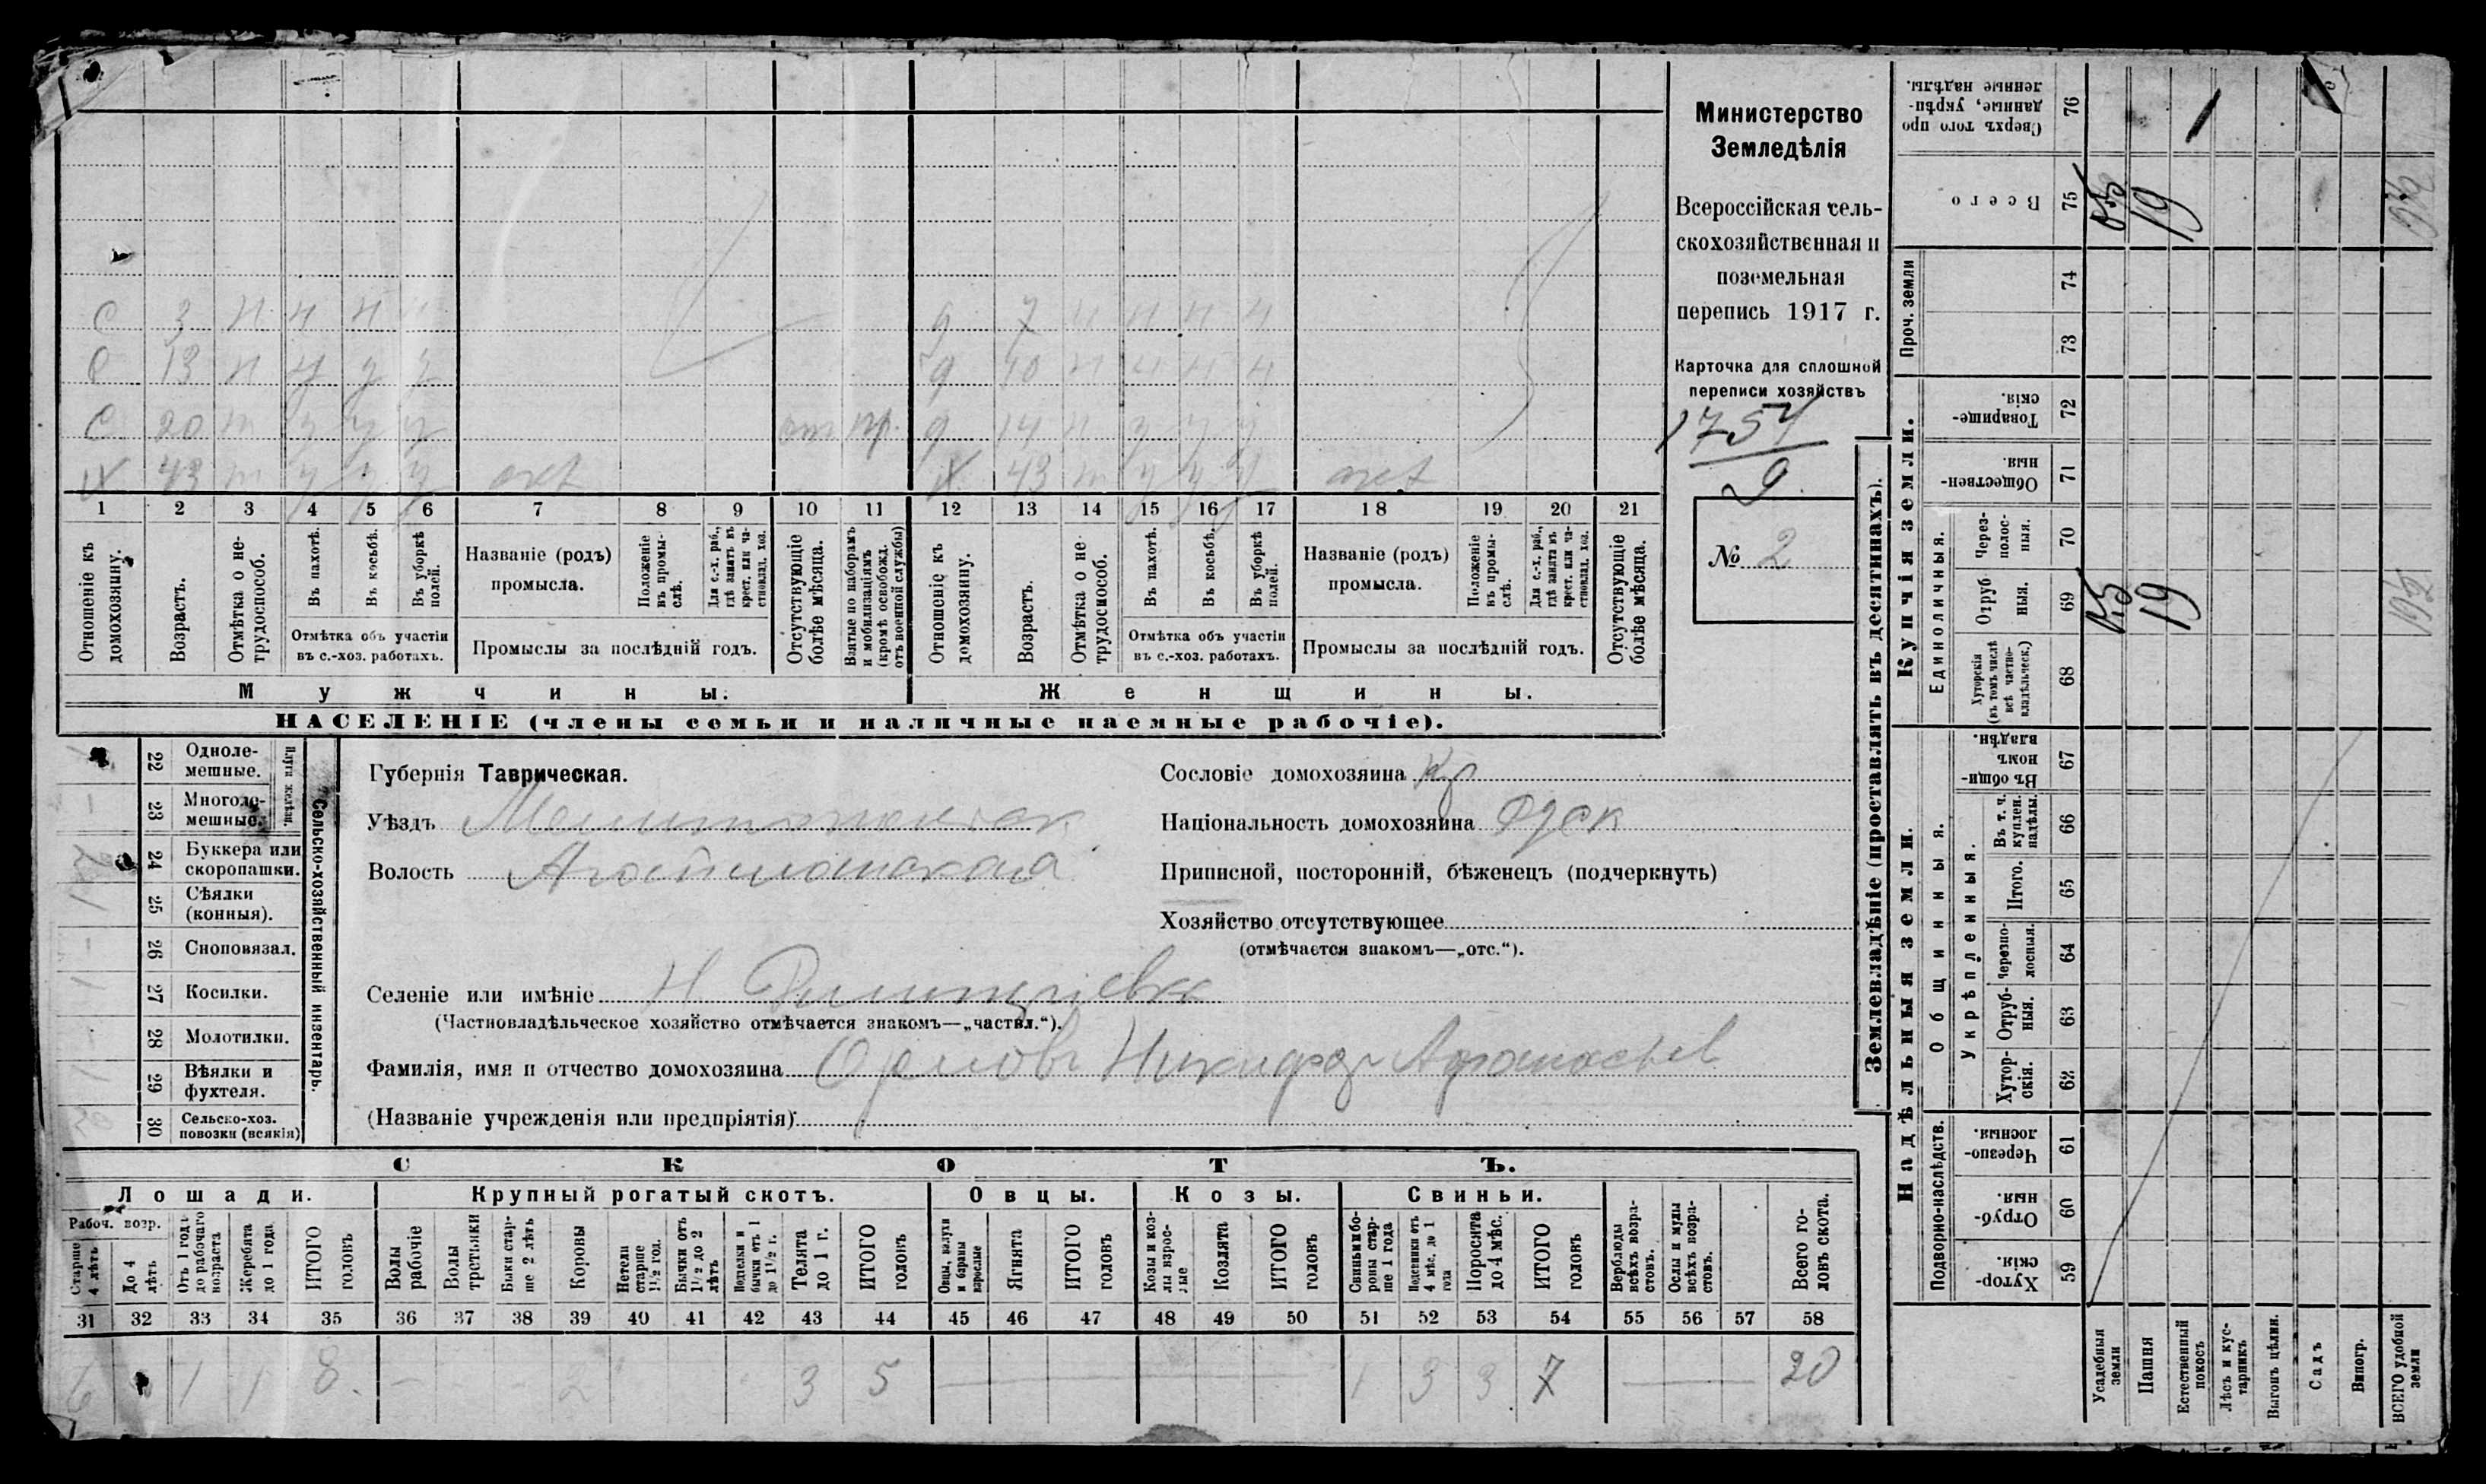 С 3 н н н н 9 7 н н н н
С 13 н у у у 9 10 н н н н
С 20 т у у у от пр. 9 14 н у у у
IX 43 т у у у X 43 т у у у
1 2 3 4 5 6 7 8 9 10 11 12 13 14 15 16 17 18 19 20 21
Отношеніе къ домохозяину.
Возрастъ.
Отмѣтка о нетрудоспособ.
Въ пахотѣ.
Въ косьбѣ.
Въ уборкѣ полей.
Отмѣтка объ участіи въ с.-хоз. работахъ.
Названіе (родъ) промысла.
Положеніе въ промыслѣ.
Для с.-х. раб., гдѣ занятъ въ крест. или частновлад. хоз.
Промыслы за послѣдній годъ.
Отсутствующіе болѣе мѣсяца.
Взятые по наборамъ и мобилизаціямъ (кромѣ освобожд. отъ военной службы)
Отношеніе къ домохозяину.
Возрастъ.
Отмѣтка о не трудоспособ.
Въ пахотѣ.
Въ косьбѣ.
Въ уборкѣ полей.
Отмѣтка объ участіи въ с.-хоз. работахъ.
Названіе (родъ) промысла.
Положеніе въ промыслѣ.
Для с.-х. раб., гдѣ занята въ крест. или частновлад. хоз.
Промыслы за послѣдній годъ.
Отсутствующіе болѣе мѣсяца.
Мужчины. Женщины.
НАСЕЛЕНІЕ (члены семьи и наличные наемные рабочіе).
Министерство
Земледѣлія
Всероссійская сель-
скохозяйственная и
поземельная
перепись 1917 г.
Карточка для сплошной
переписи хозяйствъ
1754
9
№ 2
22 Одноле-
мешные.
23 Многоле-
мешные.
Плуги желѣзн.
24 Буккера или
скоропашки.
25 Сѣялки
(конныя).
26 Сноповязал.
27 Косилки.
28 Молотилки.
29 Вѣялки и
фухтеля.
30 Сельско-хоз.
повозки (всякія)
Сельско-хозяйственный инвентарь.
Губернія Таврическая.
Уѣздъ Мелитопольск
Волость
Селеніе или имѣніе Н Димитріевка
(Частновладѣльческое хозяйство отмѣчается знакомъ—„частвл.“).
Фамилія, имя и отчество домохозяина Орловъ Никифор Афанасьев
(Названіе учрежденія или предпріятія)
Сословіе домохозяина Кр
Національность домохозяина
Приписной, посторонній, бѣженецъ (подчеркнуть)
Хозяйство отсутствующее
(отмѣчается знакомъ—„отс.“).
СКОТЪ.
Лошади. Крупный рогатый скотъ. Овцы. Козы. Свиньи.
Рабоч. возр.
Старше 4 лѣтъ
До 4 лѣтъ
Отъ 1 года до рабочаго возраста
Жеребята до 1 года
ИТОГО головъ
Волы рабочіе
Волы третьяки
Быки старше 2 лѣтъ
Коровы
Нетели старше 1½ год.
Бычки отъ 1½ до 2 лѣтъ
Подтелки и бычки отъ 1 до 1½ г.
Телята до 1 г.
ИТОГО головъ
Овцы, валухи и бараны взрослые
Ягнята
ИТОГО головъ
Козы и козлы взрослые
Козлята
ИТОГО головъ
Свиньи и бороны старше 1 года
Подсвинки отъ 4 мѣс. до 1 года
Поросята до 4 мѣс.
ИТОГО головъ
Верблюды всѣхъ возрастовъ.
Ослы и мулы всѣхъ возрастовъ.
Всего головъ скота.
31 32 33 34 35 36 37 38 39 40 41 42 43 44 45 46 47 48 49 50 51 52 53 54 55 56 57 58
6 1 1 8. – 2 3 5 1 3 3 7 20
Землевладѣніе (проставлять въ десятинахъ).
Купчія земли.
Надѣльныя земли.
Сверхъ того проданные, укрѣпленные надѣлы. 76
Всего 75 19
Проч. земли 74 73
Товарищескія. 72
Общественныя. 71
Единоличныя.
Черезполосныя. 70
Отрубныя. 69 19
Хуторскія (въ томъ числѣ всѣ частновладѣльческ.) 68
Общинныя.
Въ общинномъ владѣн. 67
Укрѣпленныя.
Въ т. ч. куплен. надѣлы. 66
Итого. 65
Черезполосныя. 64
Отрубныя. 63
Хуторскія. 62
Подворно-наслѣдств.
Черезполосныя. 61
Отрубныя. 60
Хуторскія. 59
Усадебныя земли
Пашня
Естественный покосъ
Лѣсъ и кустарникъ
Выгонъ цѣлин.
Садъ
Виногр.
ВСЕГО удобной земли